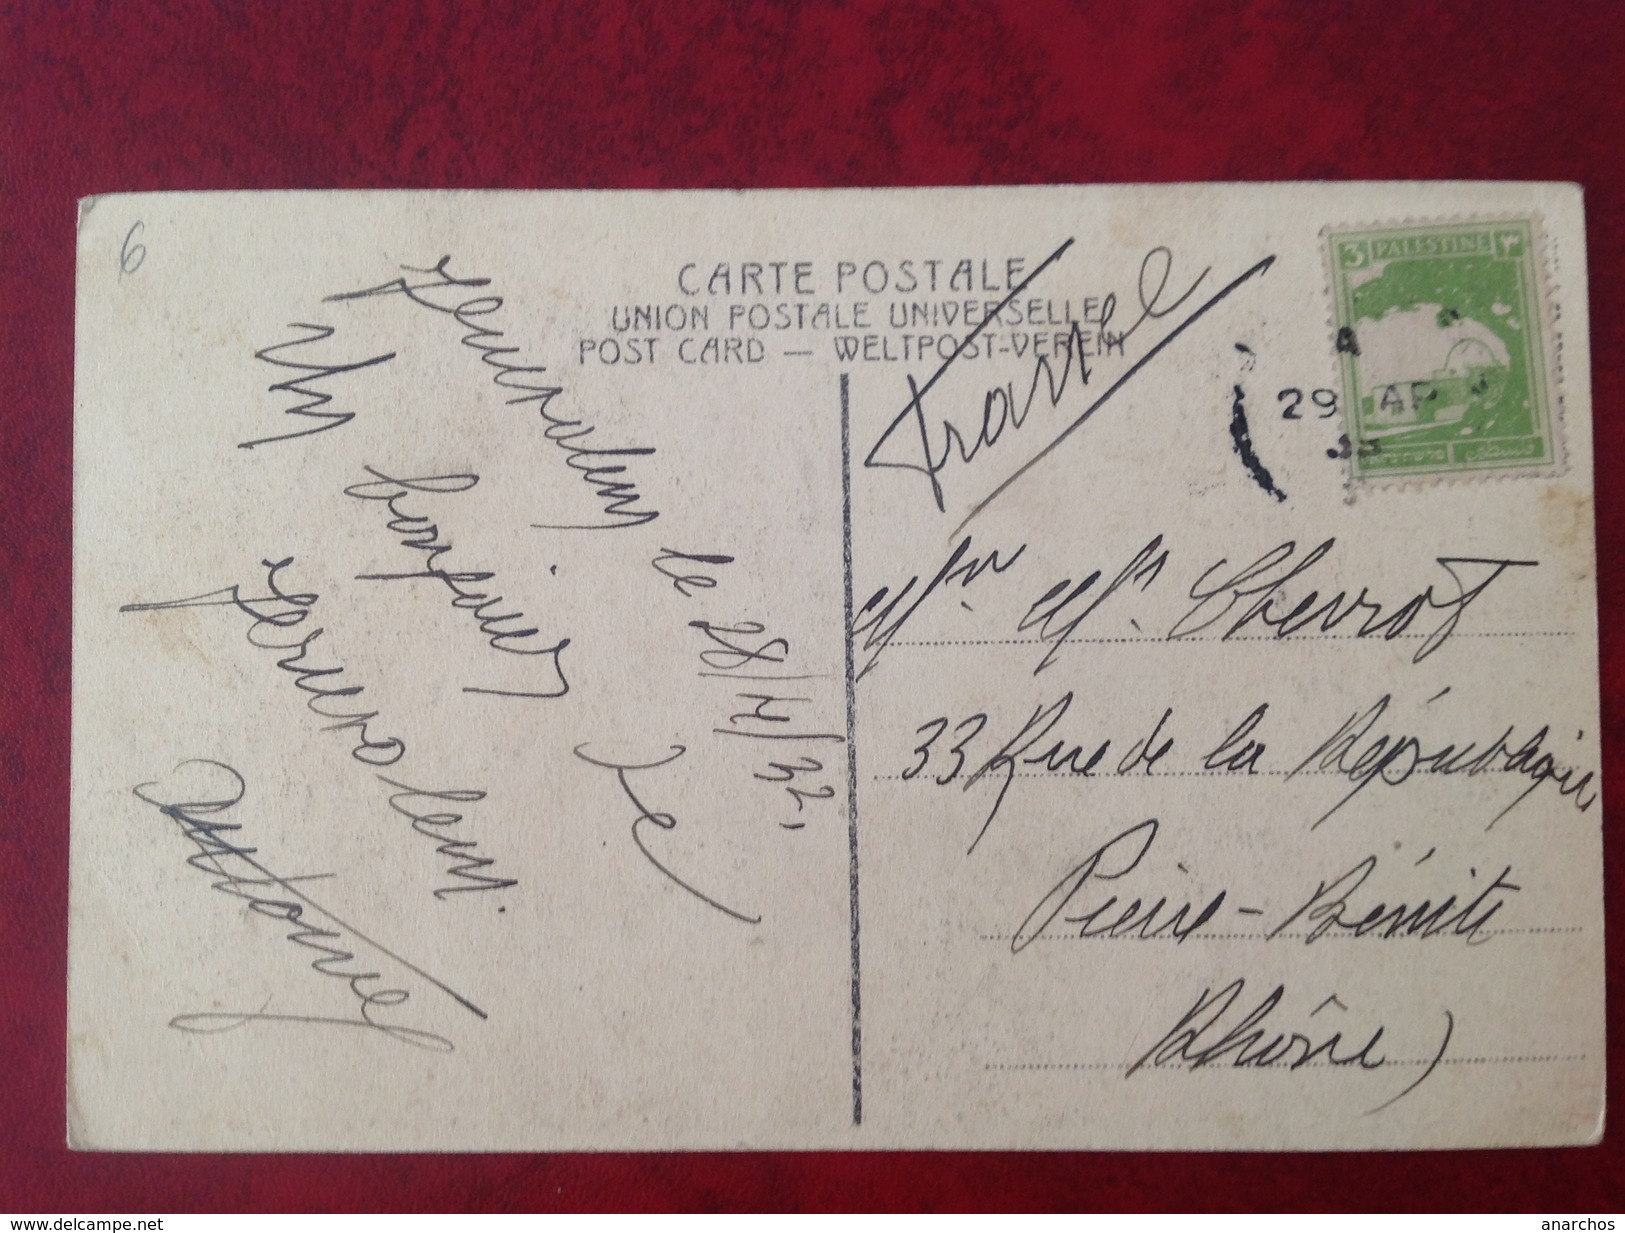 6
CARTE POSTALE
UNION POSTALE UNIVERSELLE
POST CARD — WELTPOST-VEREIN
3 PALESTINE ٣
فلسطين
A
29 AP
Jerusalem le 28/4/32.
Un bonjour de
Jerusalem.
France
Mr Chevrot
33 Rue de la République
Pierre-Bénite
Rhône)
www.delcampe.net
anarchos